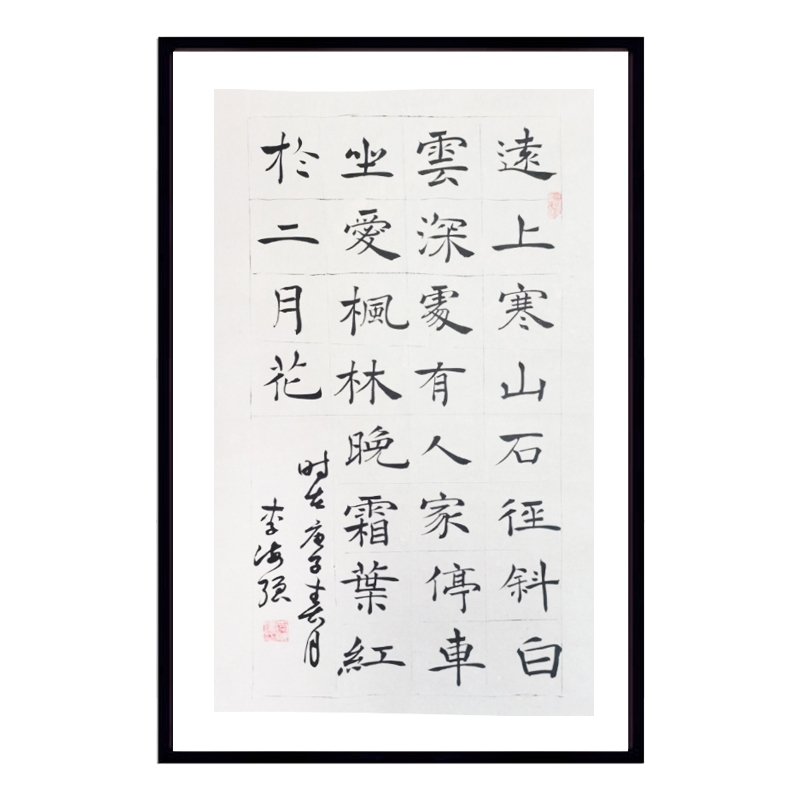 遠上寒山石徑斜白
雲深處有人家停車
坐愛楓林晚霜葉紅
於二月花
时在庚子春月
李海强